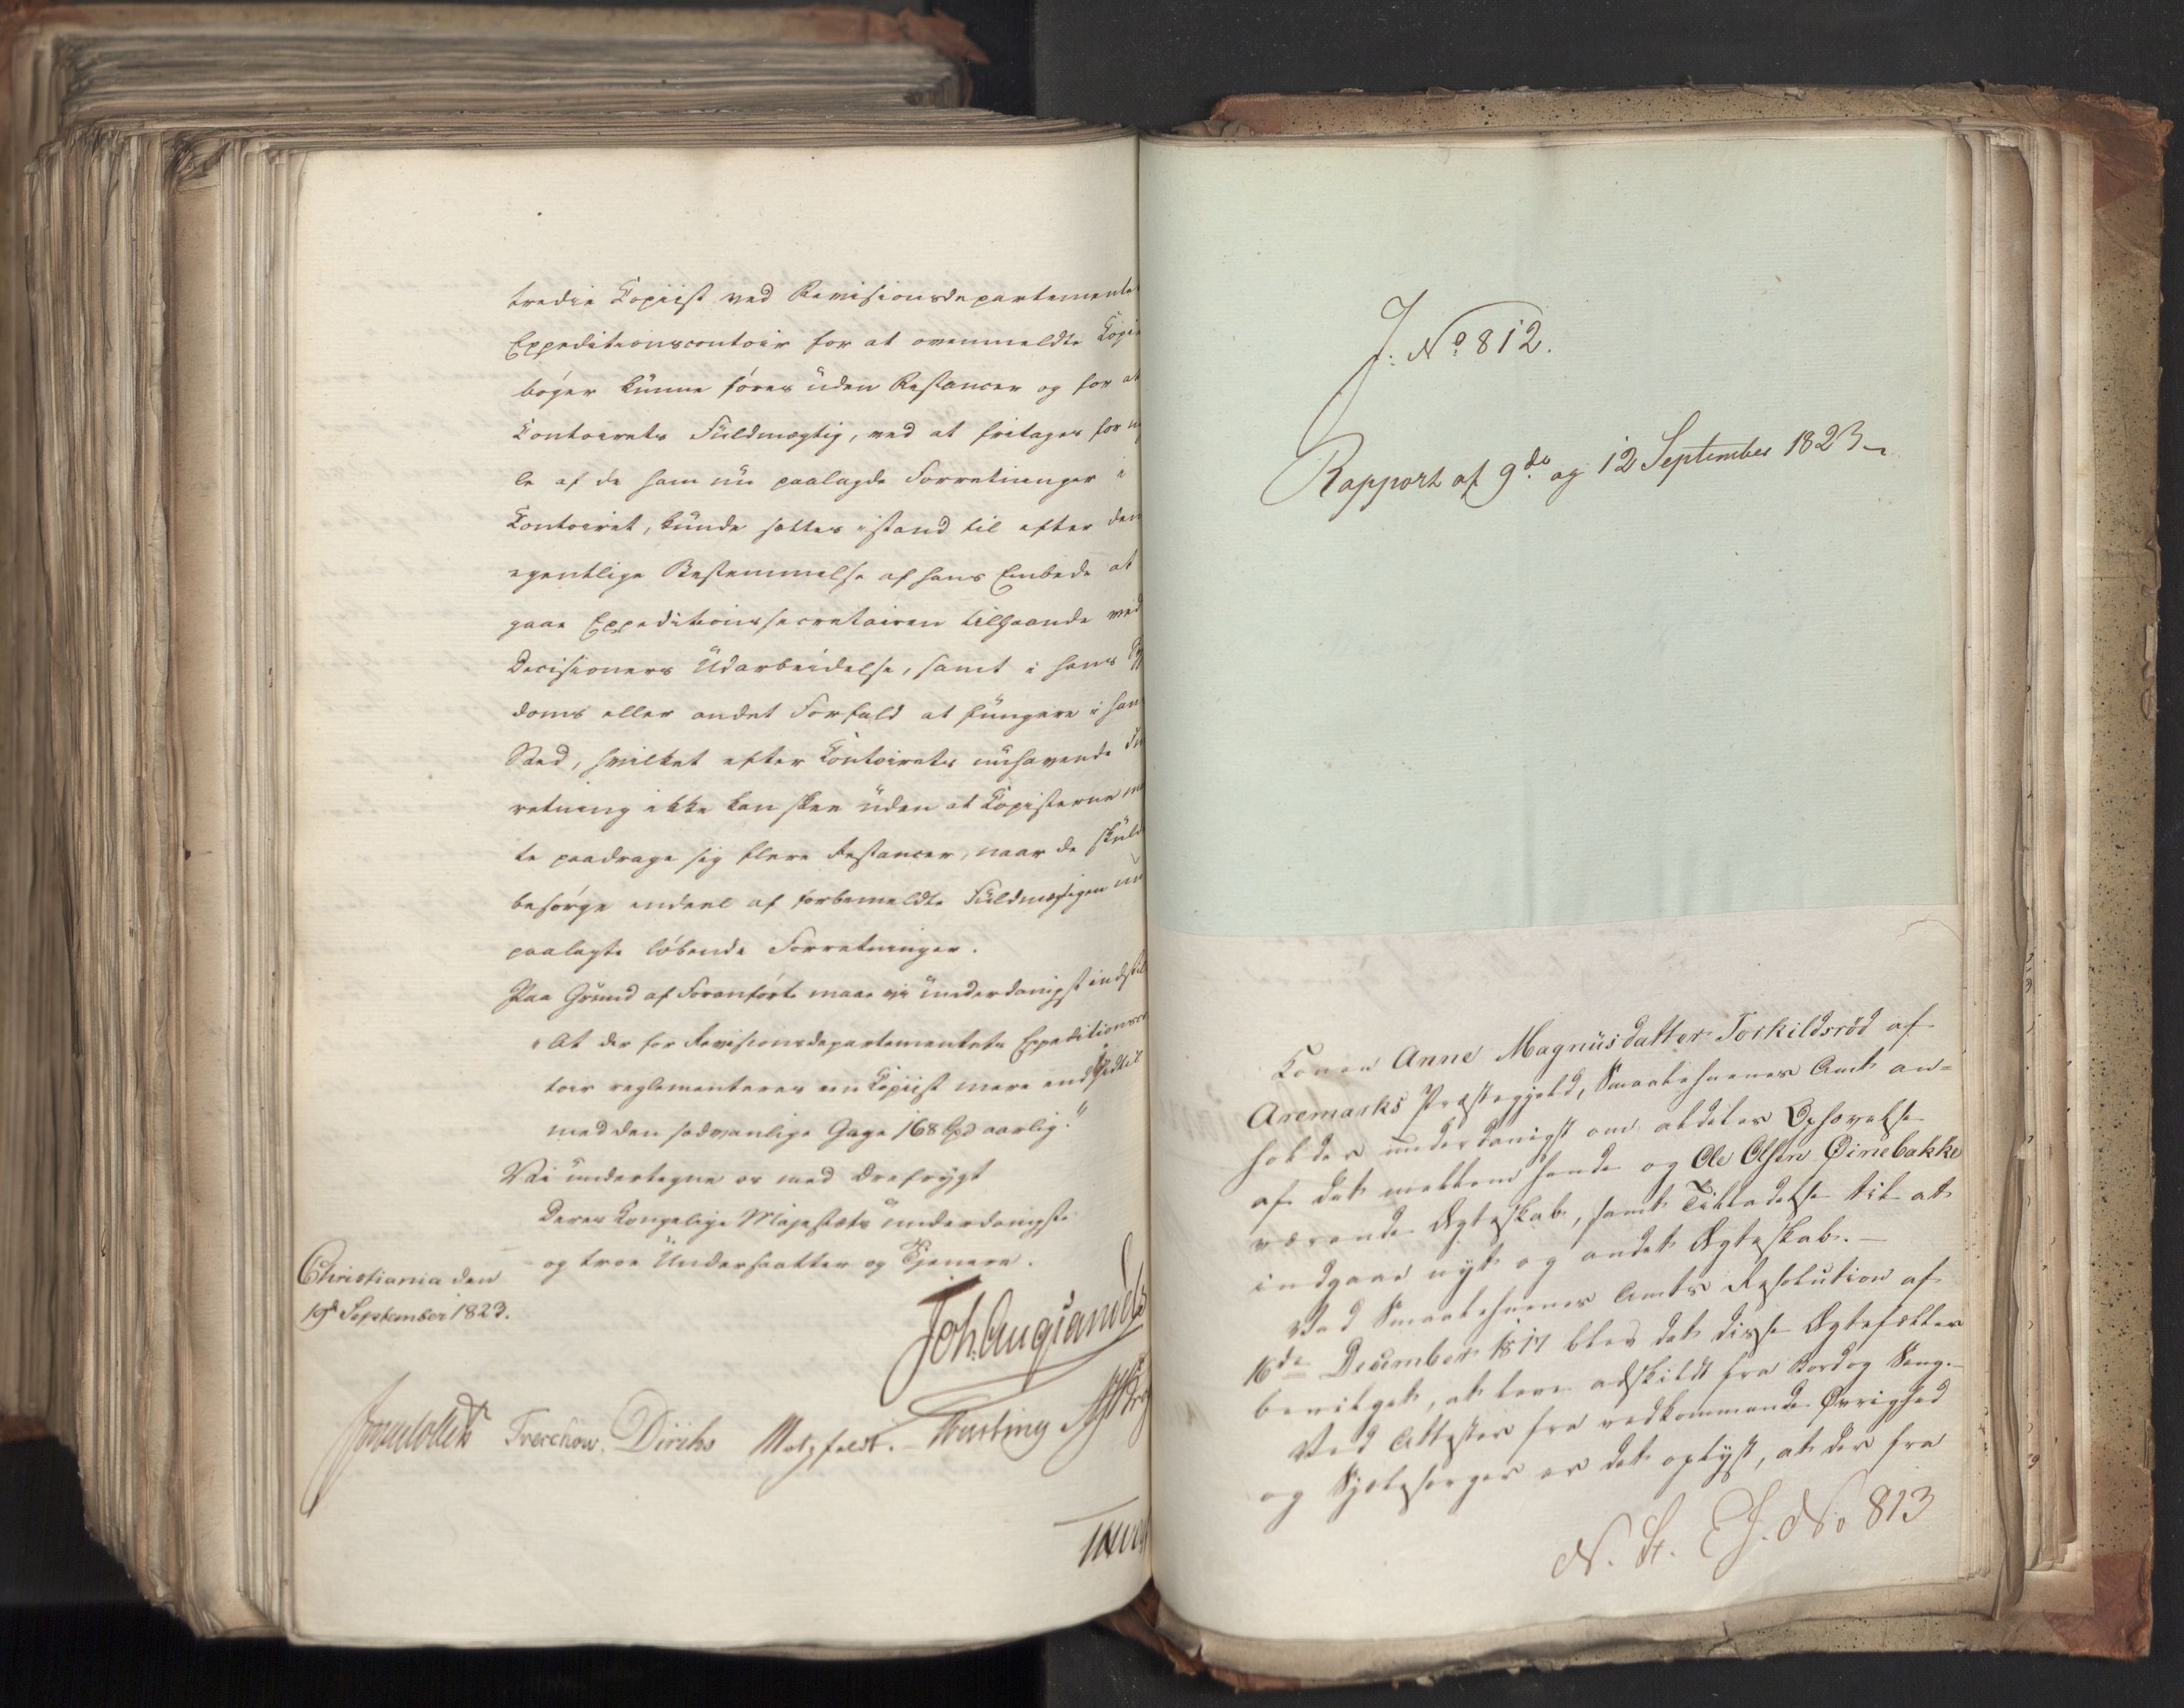 tredie Copiist ved Revisionsdepartemente
Expeditionscontoir for at ovenmeldte Copie
bøger kunne føres uden Restancer og for at
Contoirets Fuldmægtig, ved at fritages for
le af de ham nu paalagde Forretninger i
Contoiret, kunde sættes istand til efter den
egentlige Bestemmelse af hans Embede at
gaae Expeditionssecretairen tilhaande ved
Decisioners Udarbeidelse, samt i hans
doms eller andet Forfald at fungere i han
Sted, hvilket efter Contoirets nuhavende
retning ikke kan skee uden at Copisterne
te paadrage sig flere Restancer, naar de skuld
besørge endeel af forbemeldte Fuldmægtigen nu
paalagte løbende Forretninger.
Paa Grund af Foranførte maae vi underdanigst indstil
"At der for Revisionsdepartementets Expeditionsco
toir reglementeres en Copiist mere end hidtil
med den sædvanlige Gage 168 Spd aarlig."
Vi undertegne os med Ærefrygt
Deres Kongelige Majestæts underdanigste
og troe Undersaatter og Tjenere.
Christiania den
19d September 1823.
Treschow. Diriks Motzfeldt.
J: No 812.
Rapport af 9de og 12 September 1823
Konen Anne Magnusdatter Torkildsrød af
Aremarks Præstegjeld, Smaalehnenes Amt an-
holder underdanigst om aldeles Ophævelse
af det mellem hende og Ole Olsen Øinebakke
værende Ægteskab, samt Tilladelse til at
indgaae nyt og andet Ægteskab. -
Ved Smaalehnenes Amts Resolution af
16de December 1817 blev det disse Ægtefæller
bevilget, at leve adskildt fra Bord og Seng. -
Ved Attester fra vedkommende Øvrighed
og Sjælesørger er det oplyst, at der fra
N. St. E. J. No 813